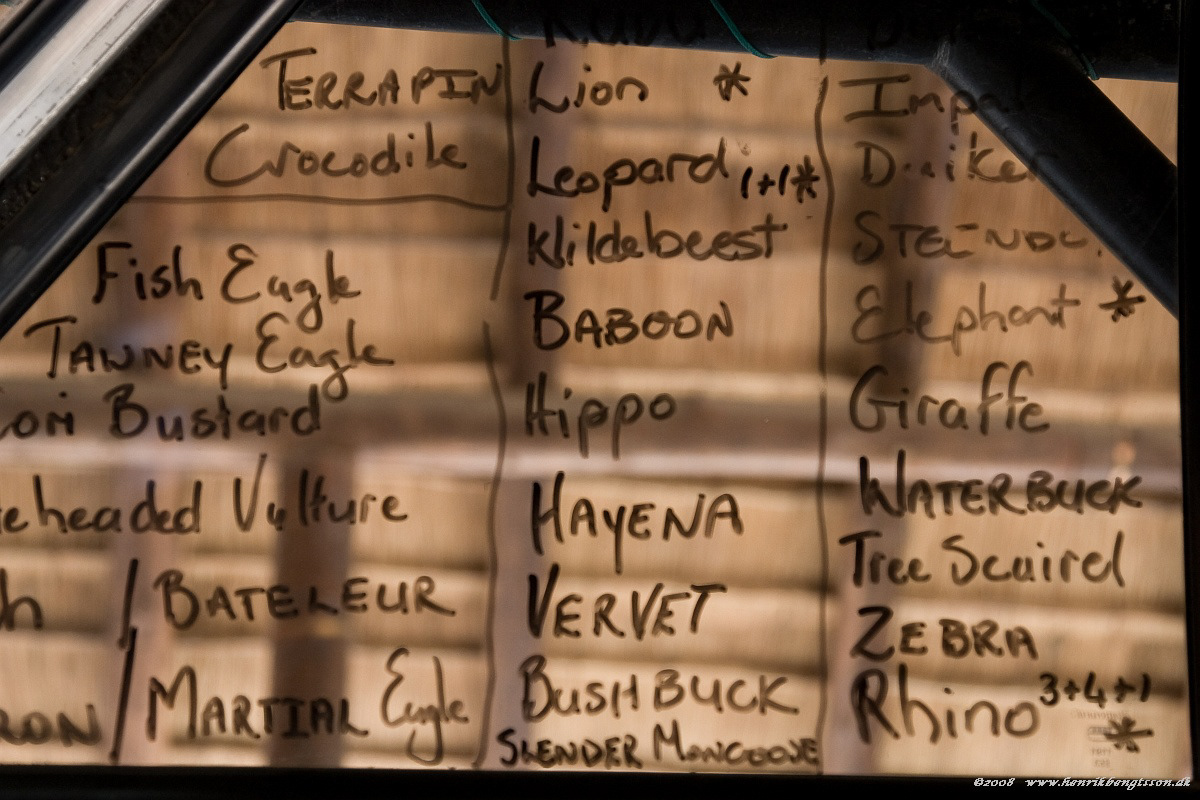 TERRAPIN
Crocodile
Fish Eagle
TAWNEY Eagle
Bustard
headed Vulture
/ BATELEUR
/ MARTIAL Eagle
KUDU
Lion *
Leopard 1+1*
Wildebeest
BABOON
Hippo
HAYENA
VERVET
BUSHBUCK
SLENDER MONGOOSE
Impal
Duiker
Elephant *
Giraffe
WATERBUCK
Tree Squirel
ZEBRA
Rhino 3+4+1 *
©2008 www.henrikbengtsson.dk